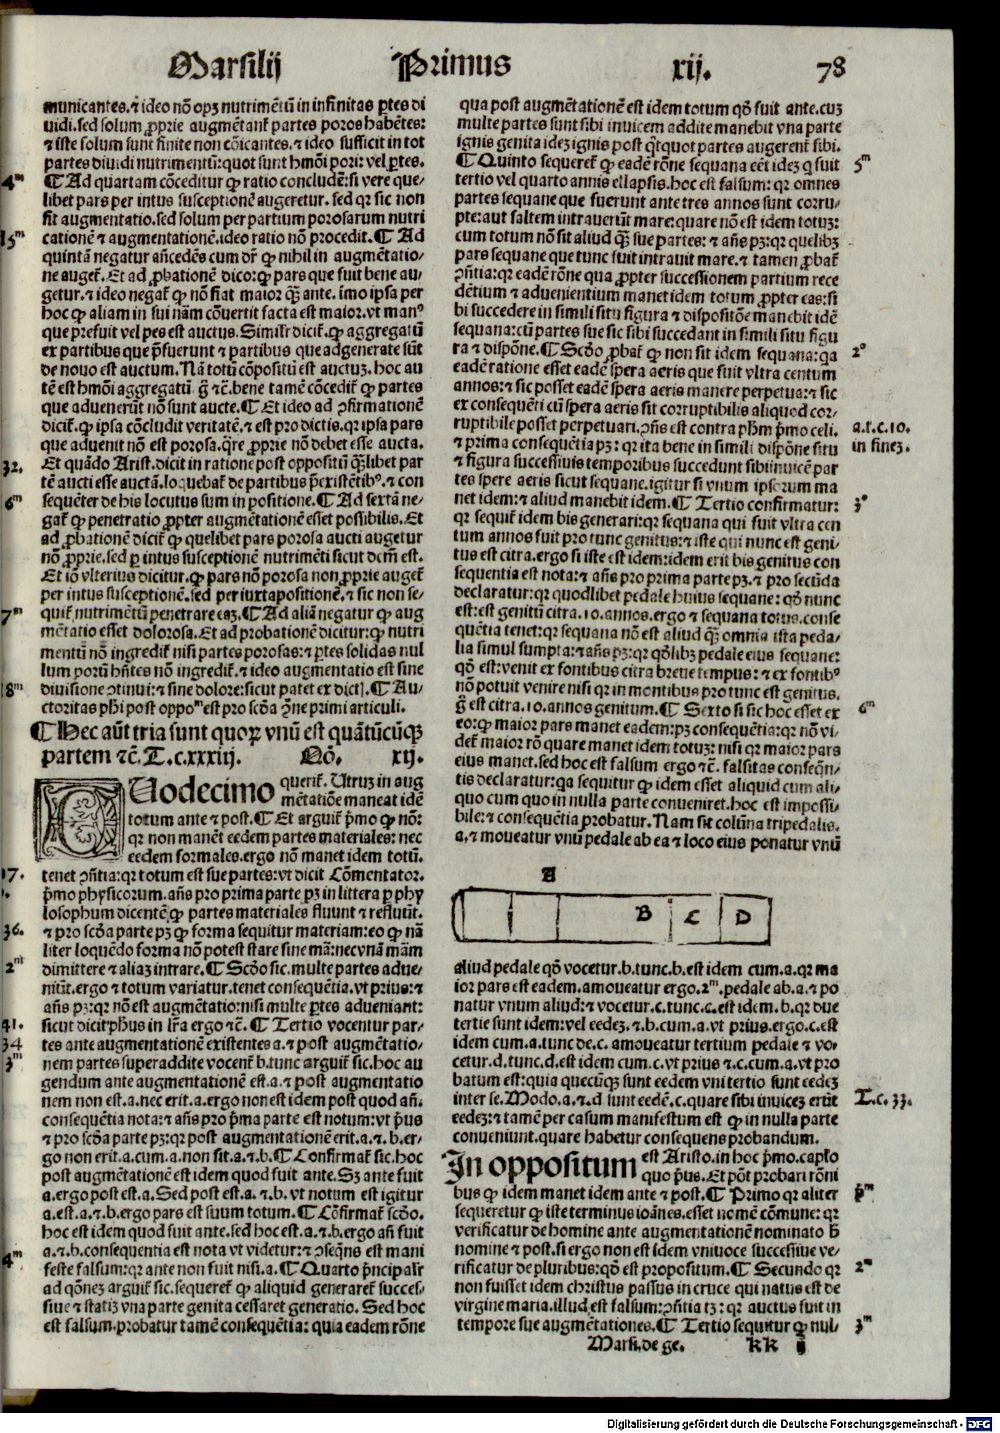 Marsilij Primus xij. 78
municantes.⁊ ideo nõ opꝫ nutrimẽtũ in infinitas ꝑtes di
uidi.sed solum ꝓprie augmẽtanť partes poros habẽtes:
⁊ iste solum sunt finite non cõicantes.⁊ ideo sufficit in tot
partes diuidi nutrimentũ:quot sunt hmõi pori: vel ꝑtes.
4ᵐ ¶ Ad quartam cõceditur ꝙ ratio concludẽ:si vere que-
libet pars per intus susceptionẽ augeretur. sed qꝛ sic non
fit augmentatio.sed solum per partium porosarum nutri
15ᵐ cationẽ ⁊ augmentationẽ.ideo ratio nõ procedit.¶ Ad
quintã negatur añcedẽs cum dꝛ̃ ꝙ nihil in augmẽtatio-
ne augeť. Et ad ꝓbationẽ dico:ꝙ pars que fuit bene au-
getur.⁊ ideo negať ꝙ nõ fiat maior q̃ꝫ ante. ĩmo ipsa per
hoc ꝙ aliam in sui nãm cõuertit facta est maior.vt manꝰ
que prefuit vel pes est auctus. Similiť dicit̃. ꝙ aggregatũ
ex partibus que p̃fuerunt ⁊ partibus que adgenerate sũt
de nouo est auctum. Nã totũ cõpositũ est auctuꝫ. hoc au
tẽ est hmõi aggregatũ g̃ ⁊c̃.bene tamẽ cõcedit̃ ꝙ partes
que aduenerũt nõ sunt aucte.¶ Et ideo ad ꝯfirmationẽ
dicit̃. ꝙ ipsa cõcludit veritatẽ.⁊ est pro dictis.qꝛ ipsa pars
que aduenit nõ est porosa.q̃re ꝓprie nõ debet esse aucta.
32. Et quãdo Arist.dicit in ratione post oppositũ q̃ꝫlibet par
tẽ aucti esse auctã.loquebať de partibus p̃existẽtibꝰ.⁊ con
6ᵐ sequẽter de his locutus sum in positione.¶ Ad sextã ne-
gať ꝙ penetratio ꝓpter augmẽtationẽ esset possibilis. Et
ad ꝓbationẽ dicit̃ ꝙ quelibet pars porosa aucti augetur
nõ ꝓprie.sed ꝑ intus susceptionẽ nutrimẽti sicut dcm̃ est.
Et iõ vlterius dicitur.ꝙ pars nõ porosa non ꝓprie augeť
per intus susceptionẽ.sed per iuxtapositionẽ.⁊ sic non se-
7ᵐ quit̃ nutrimẽtũ penetrare eaꝫ.¶ Ad aliã negatur ꝙ aug
mẽtatio esset dolorosa.Et ad probationẽ dicitur:ꝙ nutri
mentũ nõ ingredit̃ nisi partes porosas:⁊ ꝑtes solidas nul
lum porũ hñtes nõ ingredit̃.⁊ ideo augmentatio est sine
18ᵐ diuisione ꝯtinui:⁊ sine dolore:sicut patet ex dict̃.¶ Au-
ctoritas phi post oppoᵐ est pro scõa ꝯne primi articuli.
¶ Hec aũt tria sunt quoꝝ vnũ est quãtũcũqꝫ
partem ⁊c̃. T.c.xxxiij. Nõ. xij.
Duodecimo querit̃. Utruꝫ in aug
mẽtatiõe maneat idẽ
totum ante ⁊ post.¶ Et arguit̃ p̃mo ꝙ nõ:
qꝛ non manẽt eedem partes materiales: nec
eedem formales.ergo nõ manet idem totũ.
17. tenet ꝯñtia:qꝛ totum est sue partes:vt dicit Cõmentator.
p̃mo physicorum.añs pro prima parte pꝫ in littera ꝑ phy
losophum dicentẽ ꝙ partes materiales fluunt ⁊ refluũt.
36. ⁊ pro scõa parte pꝫ ꝙ forma sequitur materiam:eo ꝙ nã
liter loquẽdo forma nõ potest stare sine mã:nec vnã mãm
2ᵐ dimittere ⁊ aliaꝫ intrare.¶ Scõo sic.multe partes adue-
niũt.ergo ⁊ totum variatur.tenet consequẽtia.vt prius:⁊
añs pꝫ:qꝛ nõ est augmẽtatio:nisi multe ꝑtes adueniant:
41. sicut dicit phus in lr̃a ergo ⁊c̃.¶ Tertio vocentur par-
34 tes ante augmentationẽ existentes a.⁊ post augmẽtatio-
3ᵐ nem partes superaddite vocent̃ b.tunc arguit̃ sic.hoc au
gendum ante augmentationẽ est.a.⁊ post augmentatio
nem non est.a.nec erit.a.ergo non est idem post quod añ.
consequẽtia nota:⁊ añs pro p̃ma parte est notum:vt p̃us
⁊ pro scõa parte pꝫ:qꝛ post augmentationẽ erit.a.⁊.b.er-
go non erit.a.cum.a.non sit.a.⁊.b.¶ Confirmať sic.hoc
post augmentationẽ est idem quod fuit ante. Sꝫ ante fuit
a.ergo post est.a. Sed post est.a.⁊.b. vt notum est igitur
a.est.a.⁊.b.ergo pars est suum totum.¶ Cõfirmať scõo.
hoc est idem quod fuit ante.sed hoc est.a.⁊.b.ergo añ fuit
a.⁊.b.consequentia est nota vt videtur:⁊ ꝯseq̃ns est mani
4ᵐ feste falsum:qꝛ ante non fuit nisi.a.¶ Quarto p̃ncipaliť
ad qõnez arguit̃ sic.sequereť ꝙ aliquid generareť succes-
siue ⁊ statiꝫ vna parte genita cessaret generatio. Sed hoc
est falsum.probatur tamẽ consequẽtia: quia eadem rõne
qua post augmẽtationẽ est idem totum qõ fuit ante.cuꝫ
multe partes sunt sibi inuicem addite manebit vna parte
ignis genita ideꝫ ignis post q̃tquot partes augerent̃ sibi.
¶ Quinto sequereť ꝙ eadẽ rõne sequana eẽt ideꝫ q̃ fuit 5ᵐ
tertio vel quarto annis ellapsis.hoc est falsum: qꝛ omnes
partes sequane que fuerunt ante tres annos sunt corru-
pte:aut saltem intrauerũt mare:quare nõ est idem totuꝫ:
cum totum nõ sit aliud q̃ꝫ sue partes: ⁊ añs pꝫ:qꝛ quelibꝫ
pars sequane que tunc fuit intrauit mare.⁊ tamen ꝓbať
ꝯñtia:qꝛ eadẽ rõne qua ꝓpter successionem partium rece
dẽtium ⁊ aduenientium manet idem totum ꝓpter eas:si
bi succedere in simili situ figura ⁊ dispositõe manebit idẽ
sequana:cũ partes sue sic sibi succedant in simili situ figu
ra ⁊ dispõne.¶ Scõo ꝓbať ꝙ non sit idem sequana:qa 2ᵒ
eadẽ ratione esset eadẽ spera aeris que fuit vltra centum
annos:⁊ sic posset eadẽ spera aeris manere perpetua:⁊ sic
ex consequẽti cũ spera aeris sit corruptibilis aliquod cor-
ruptibile posset perpetuari.ꝯñs est contra phm̃ p̃mo celi. a.t.c.10.
⁊ prima consequẽtia pꝫ: qꝛ ita bene in simili dispõne situ in fineꝫ.
⁊ figura successiuis temporibus succedunt sibi inuicẽ par
tes spere aeris sicut sequane.igitur si vnum ipsorum ma
net idem:⁊ aliud manebit idem.¶ Tertio confirmatur: 3ᵒ
qꝛ sequit̃ idem bis generari:qꝛ sequana qui fuit vltra cen
tum annos fuit pro tunc genitus:⁊ iste qui nunc est geni-
tus est citra.ergo si iste est idem:idem erit bis genitus con
sequentia est nota:⁊ añs pro prima parte pꝫ.⁊ pro secũda
declaratur:qꝛ quodlibet pedale huius sequane: qõ nunc
est:est genitũ citra.10.annos.ergo ⁊ sequana totus.conse
quẽtia tenet:qꝛ sequana nõ est aliud q̃ꝫ omnia ista peda-
lia simul sumpta:⁊ añs pꝫ:qꝛ qõlibꝫ pedale eius sequane:
qõ est:venit ex fontibus citra breue tempus:⁊ ex fontibꝰ
nõ potuit venire nisi qꝛ in montibus pro tunc est genitus.
g̃ est citra.10.annos genitum.¶ Sexto si sic hoc esset ex 6ᵐ
eo:ꝙ maior pars manet eadem:pꝫ consequẽtia:qꝛ nõ vi-
deť maior rõ quare manet idem totuꝫ: nisi qꝛ maior pars
eius manet.sed hoc est falsum ergo ⁊c̃. falsitas conseq̃n-
tis declaratur:qa sequitur ꝙ idem esset aliquid cum ali-
quo cum quo in nulla parte conueniret.hoc est impossi-
bile:⁊ consequẽtia probatur. Nam sit colũna tripedalis.
a,⁊ moueatur vnũ pedale ab ea ⁊ loco eius ponatur vnũ
A
B C D
aliud pedale qõ vocetur.b.tunc.b.est idem cum.a.qꝛ ma
ior pars est eadem.amoueatur ergo.2ᵐ.pedale ab.a.⁊ po
natur vnum aliud:⁊ vocetur.c.tunc.c.est idem.b.qꝛ due
tertie sunt idem:vel eedeꝫ.⁊.b.cum.a.vt prius.ergo.c.est
idem cum.a.tunc de.c. amoueatur tertium pedale ⁊ vo-
cetur.d.tunc.d.est idem cum.c.vt prius ⁊.c.cum.a.vt pro
batum est:quia quecũqꝫ sunt eedem vni tertio sunt eedeꝫ
inter se.Modo.a.⁊.d sunt eedẽ.c.quare sibi inuiceꝫ erũt T.c.33.
eedeꝫ:⁊ tamẽ per casum manifestum est ꝙ in nulla parte
conueniunt.quare habetur consequens probandum.
In oppositum est Aristo.in hoc p̃mo.capto
quo p̃us.Et põt probari rõni
bus ꝙ idem manet idem ante ⁊ post.¶ Primo qꝛ aliter pᵐ
sequeretur ꝙ iste terminus ioãnes.esset nomẽ cõmune: qꝛ
verificatur de homine ante augmentationẽ nominato h̃
nomine ⁊ post.si ergo non est idem vniuoce successiue ve-
rificatur de pluribus:qõ est propositum.¶ Secundo qꝛ 2ᵐ
non fuisset idem christus passus in cruce qui natus est de
virgine maria.illud est falsum:ꝯñtia tꝫ: qꝛ auctus fuit in
tempore sue augmẽtationes.¶ Tertio sequitur ꝙ nul- 3ᵐ
Marsi.de ge. kk ij
Digitalisierung gefördert durch die Deutsche Forschungsgemeinschaft - DFG